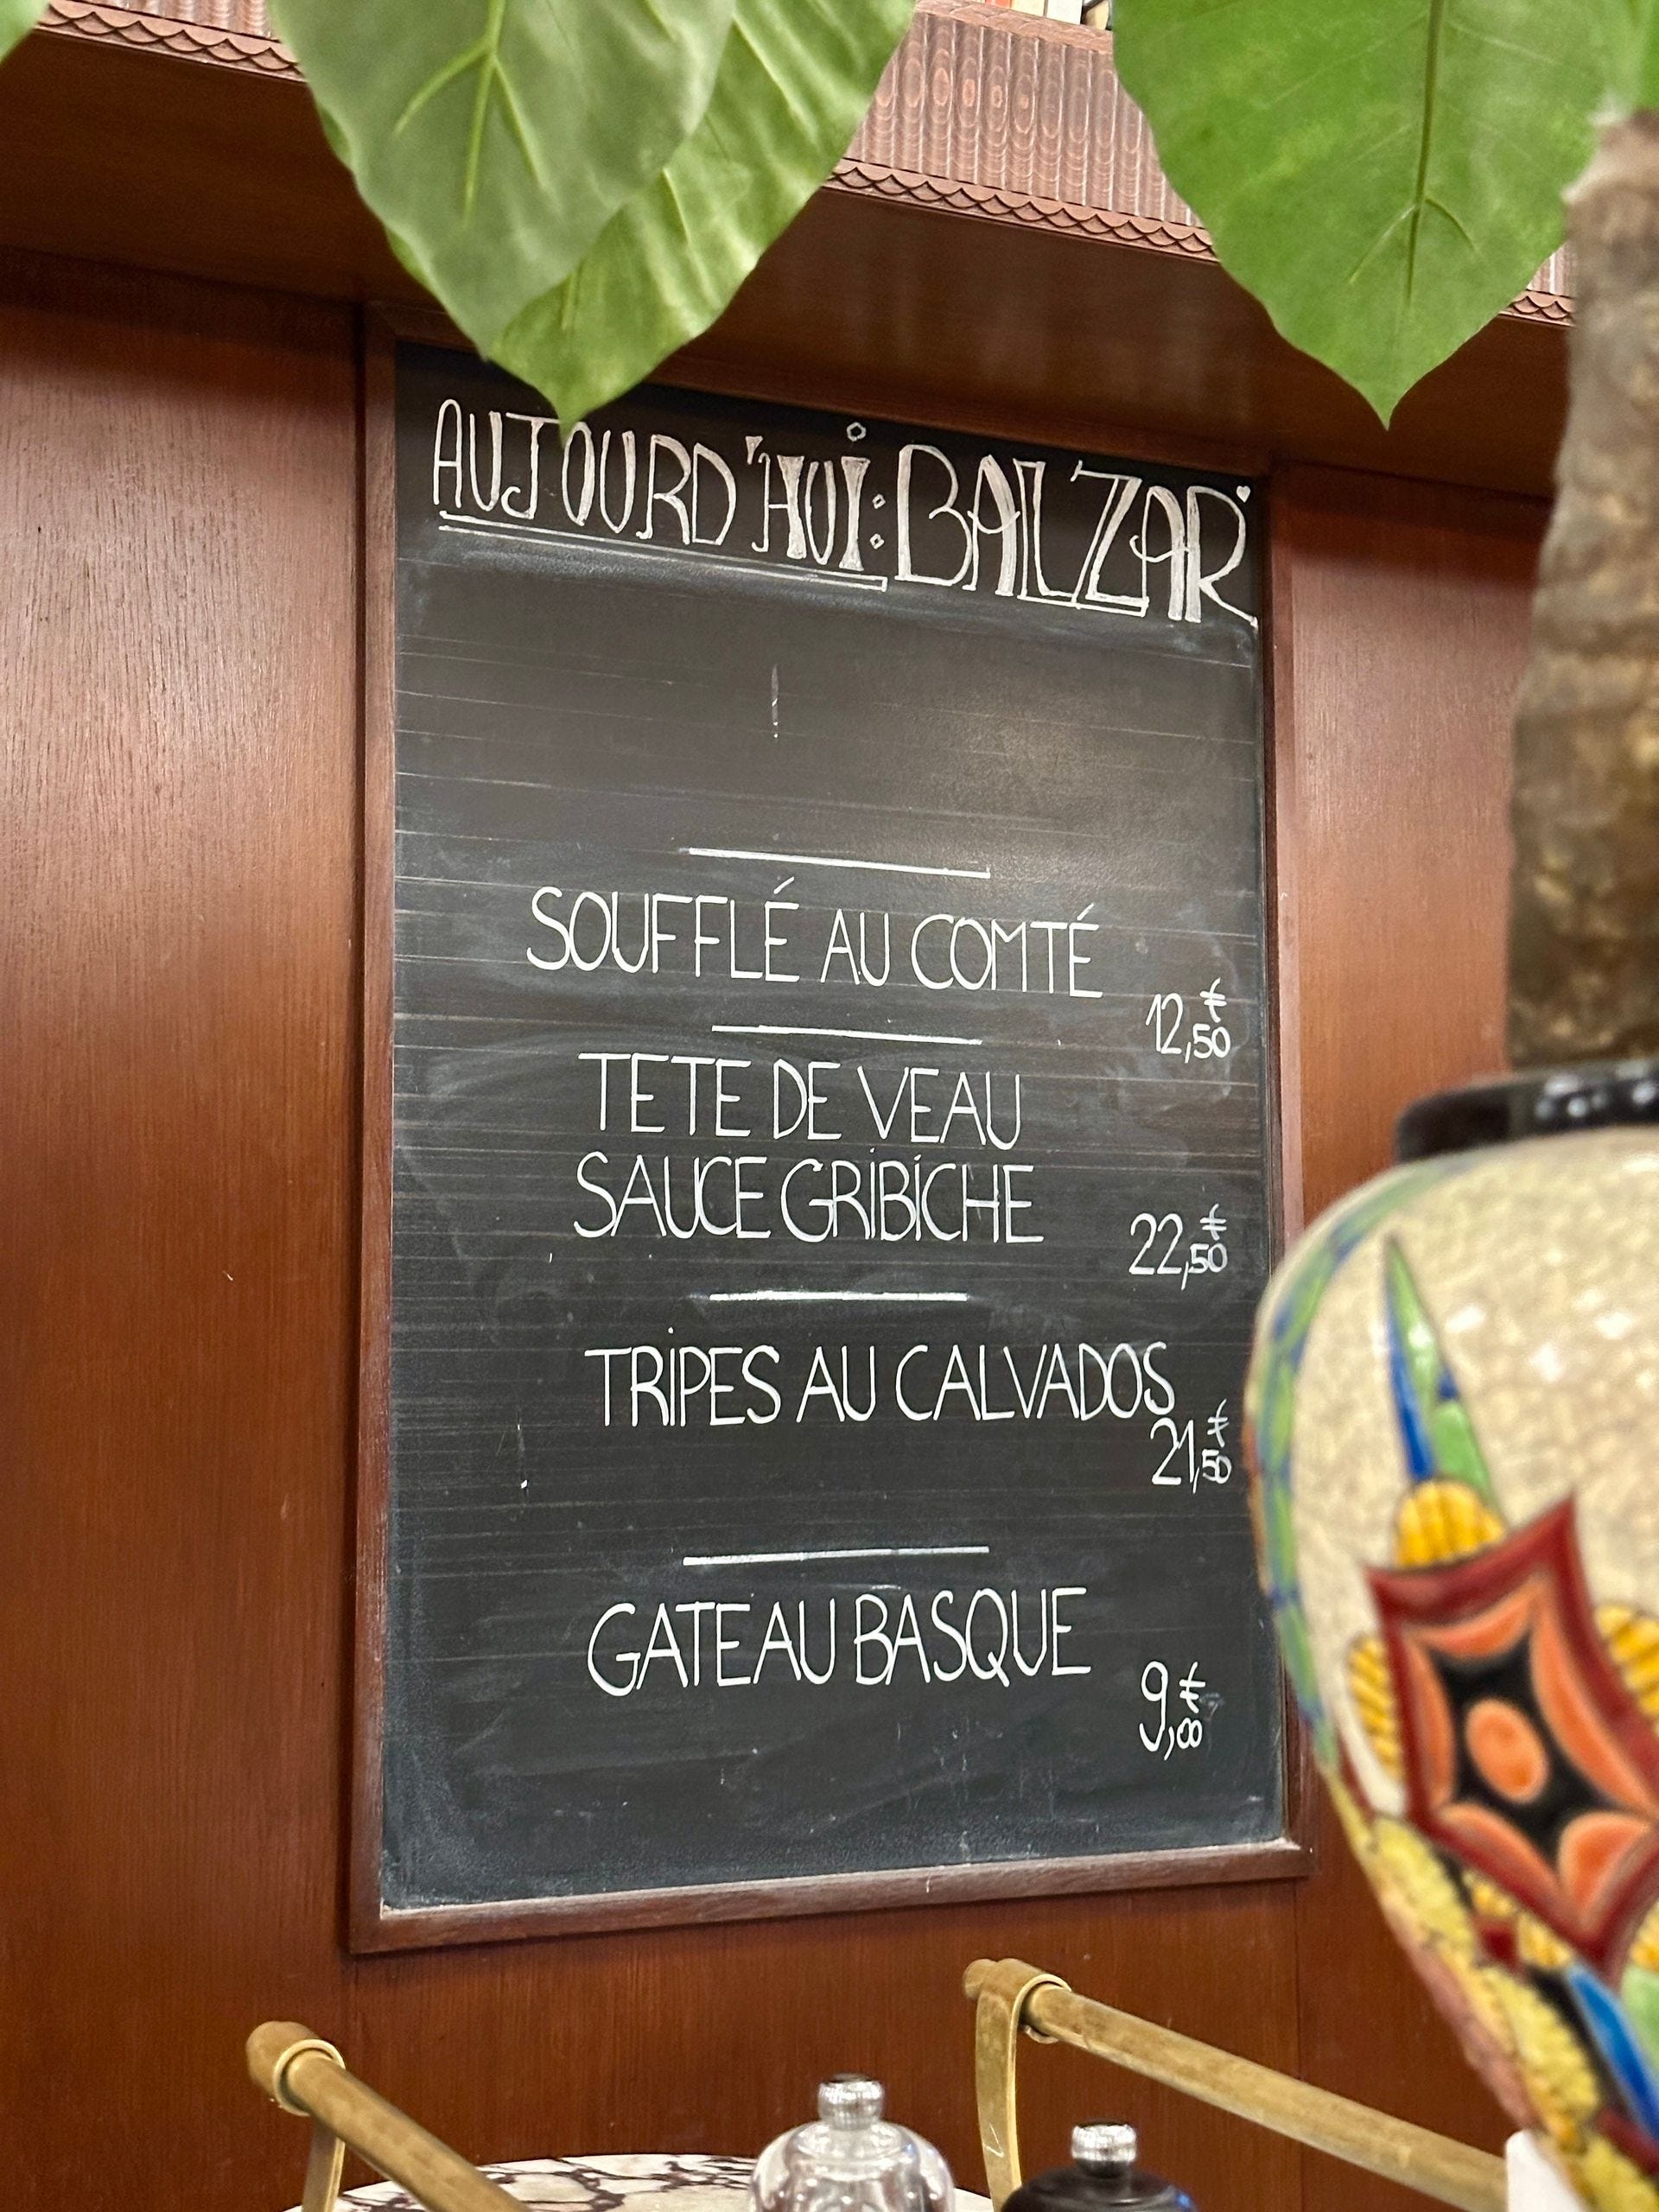 AUJOURD'HUI: BALZAR
SOUFFLÉ AU COMTÉ
12,50€
TETE DE VEAU
SAUCE GRIBICHE
22,50€
TRIPES AU CALVADOS
21,50€
GATEAU BASQUE
9,00€